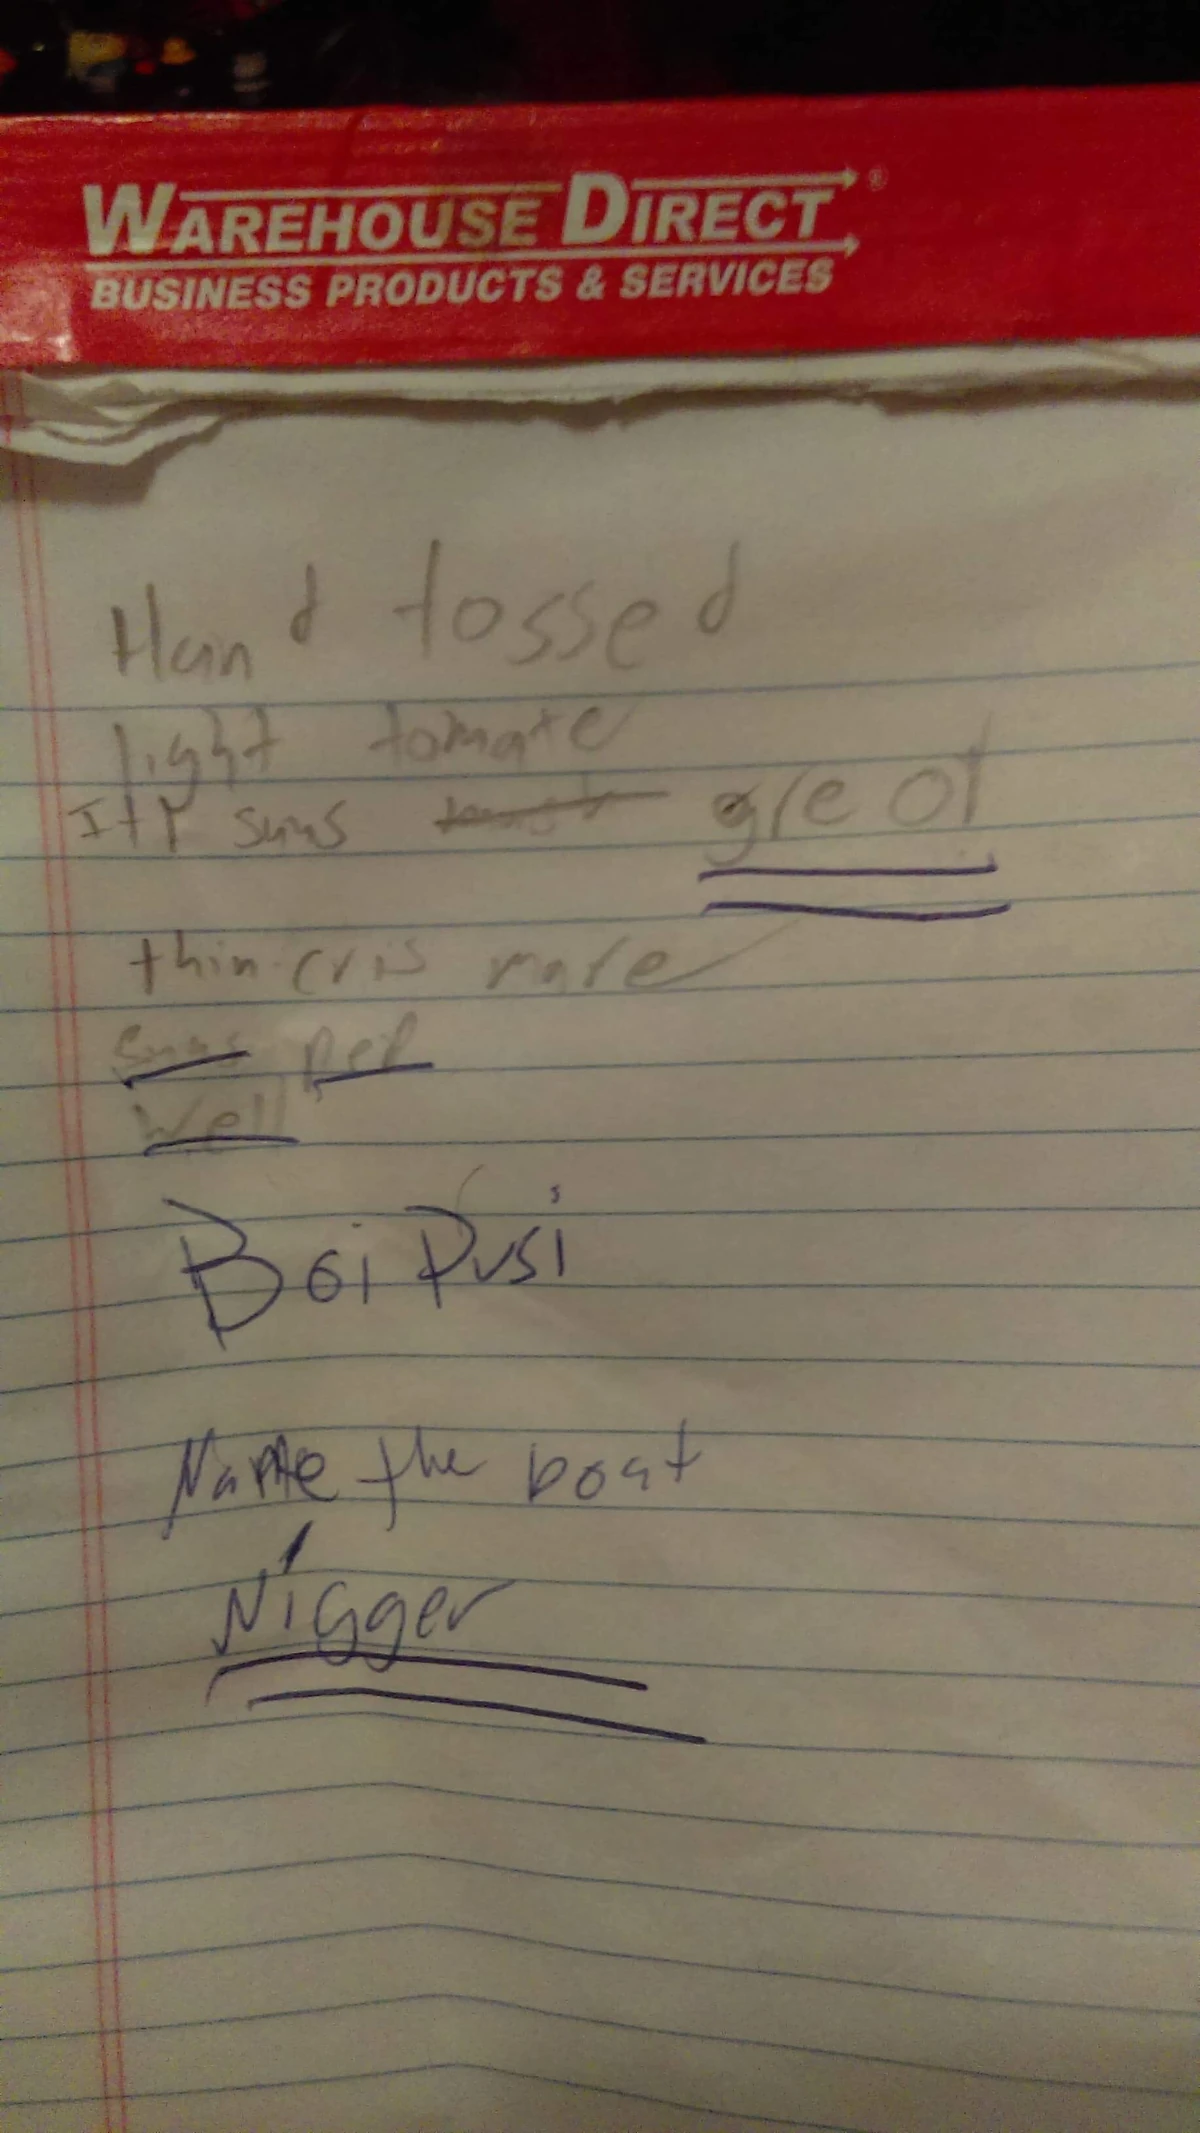 WAREHOUSE DIRECT®
BUSINESS PRODUCTS & SERVICES
Hand tossed
light tomate
great
thin cris more
Well
Boi Pusi
Name the boat
Nigger